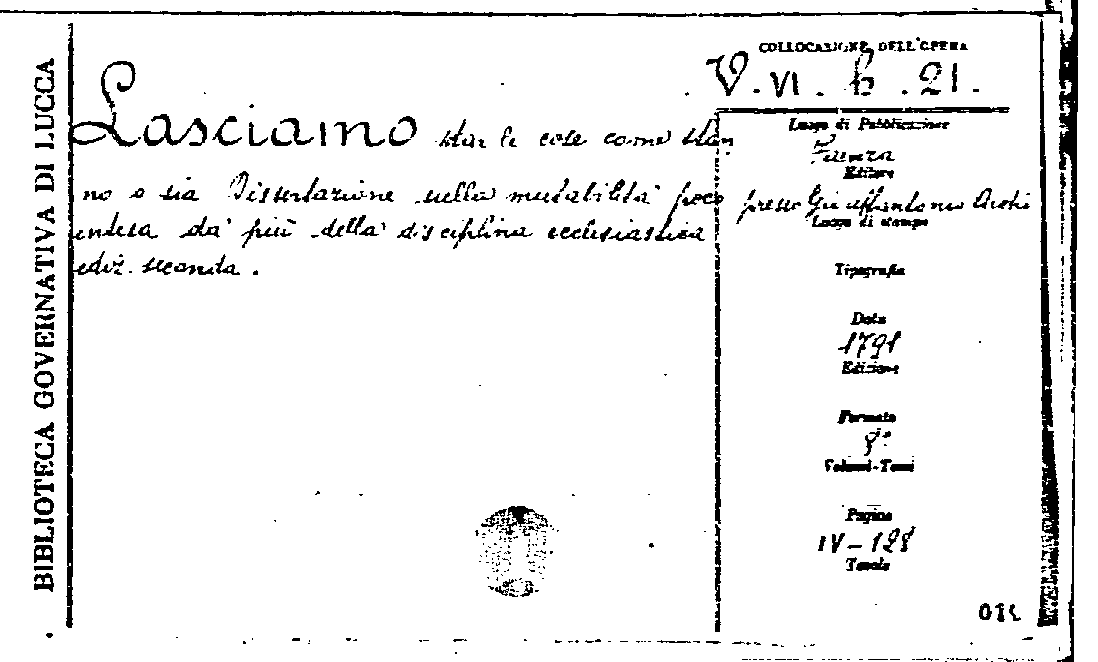 BIBLIOTECA GOVERNATIVA DI LUCCA
COLLOCAZIONE DELL'OPERA
V. VI. b. 21.
Lasciamo star le cose come stan
no o sia Dissertazione sulla mutabilità poco
intesa da più della disciplina ecclesiastica
ediz. seconda.
Luogo di Pubblicazione
Faenza
Editore
presso Archi
Luogo di stampa
Tipografia
Data
1791
Edizione
Formato
8°
Volumi-Tomi
Pagine
IV-128
Tavole